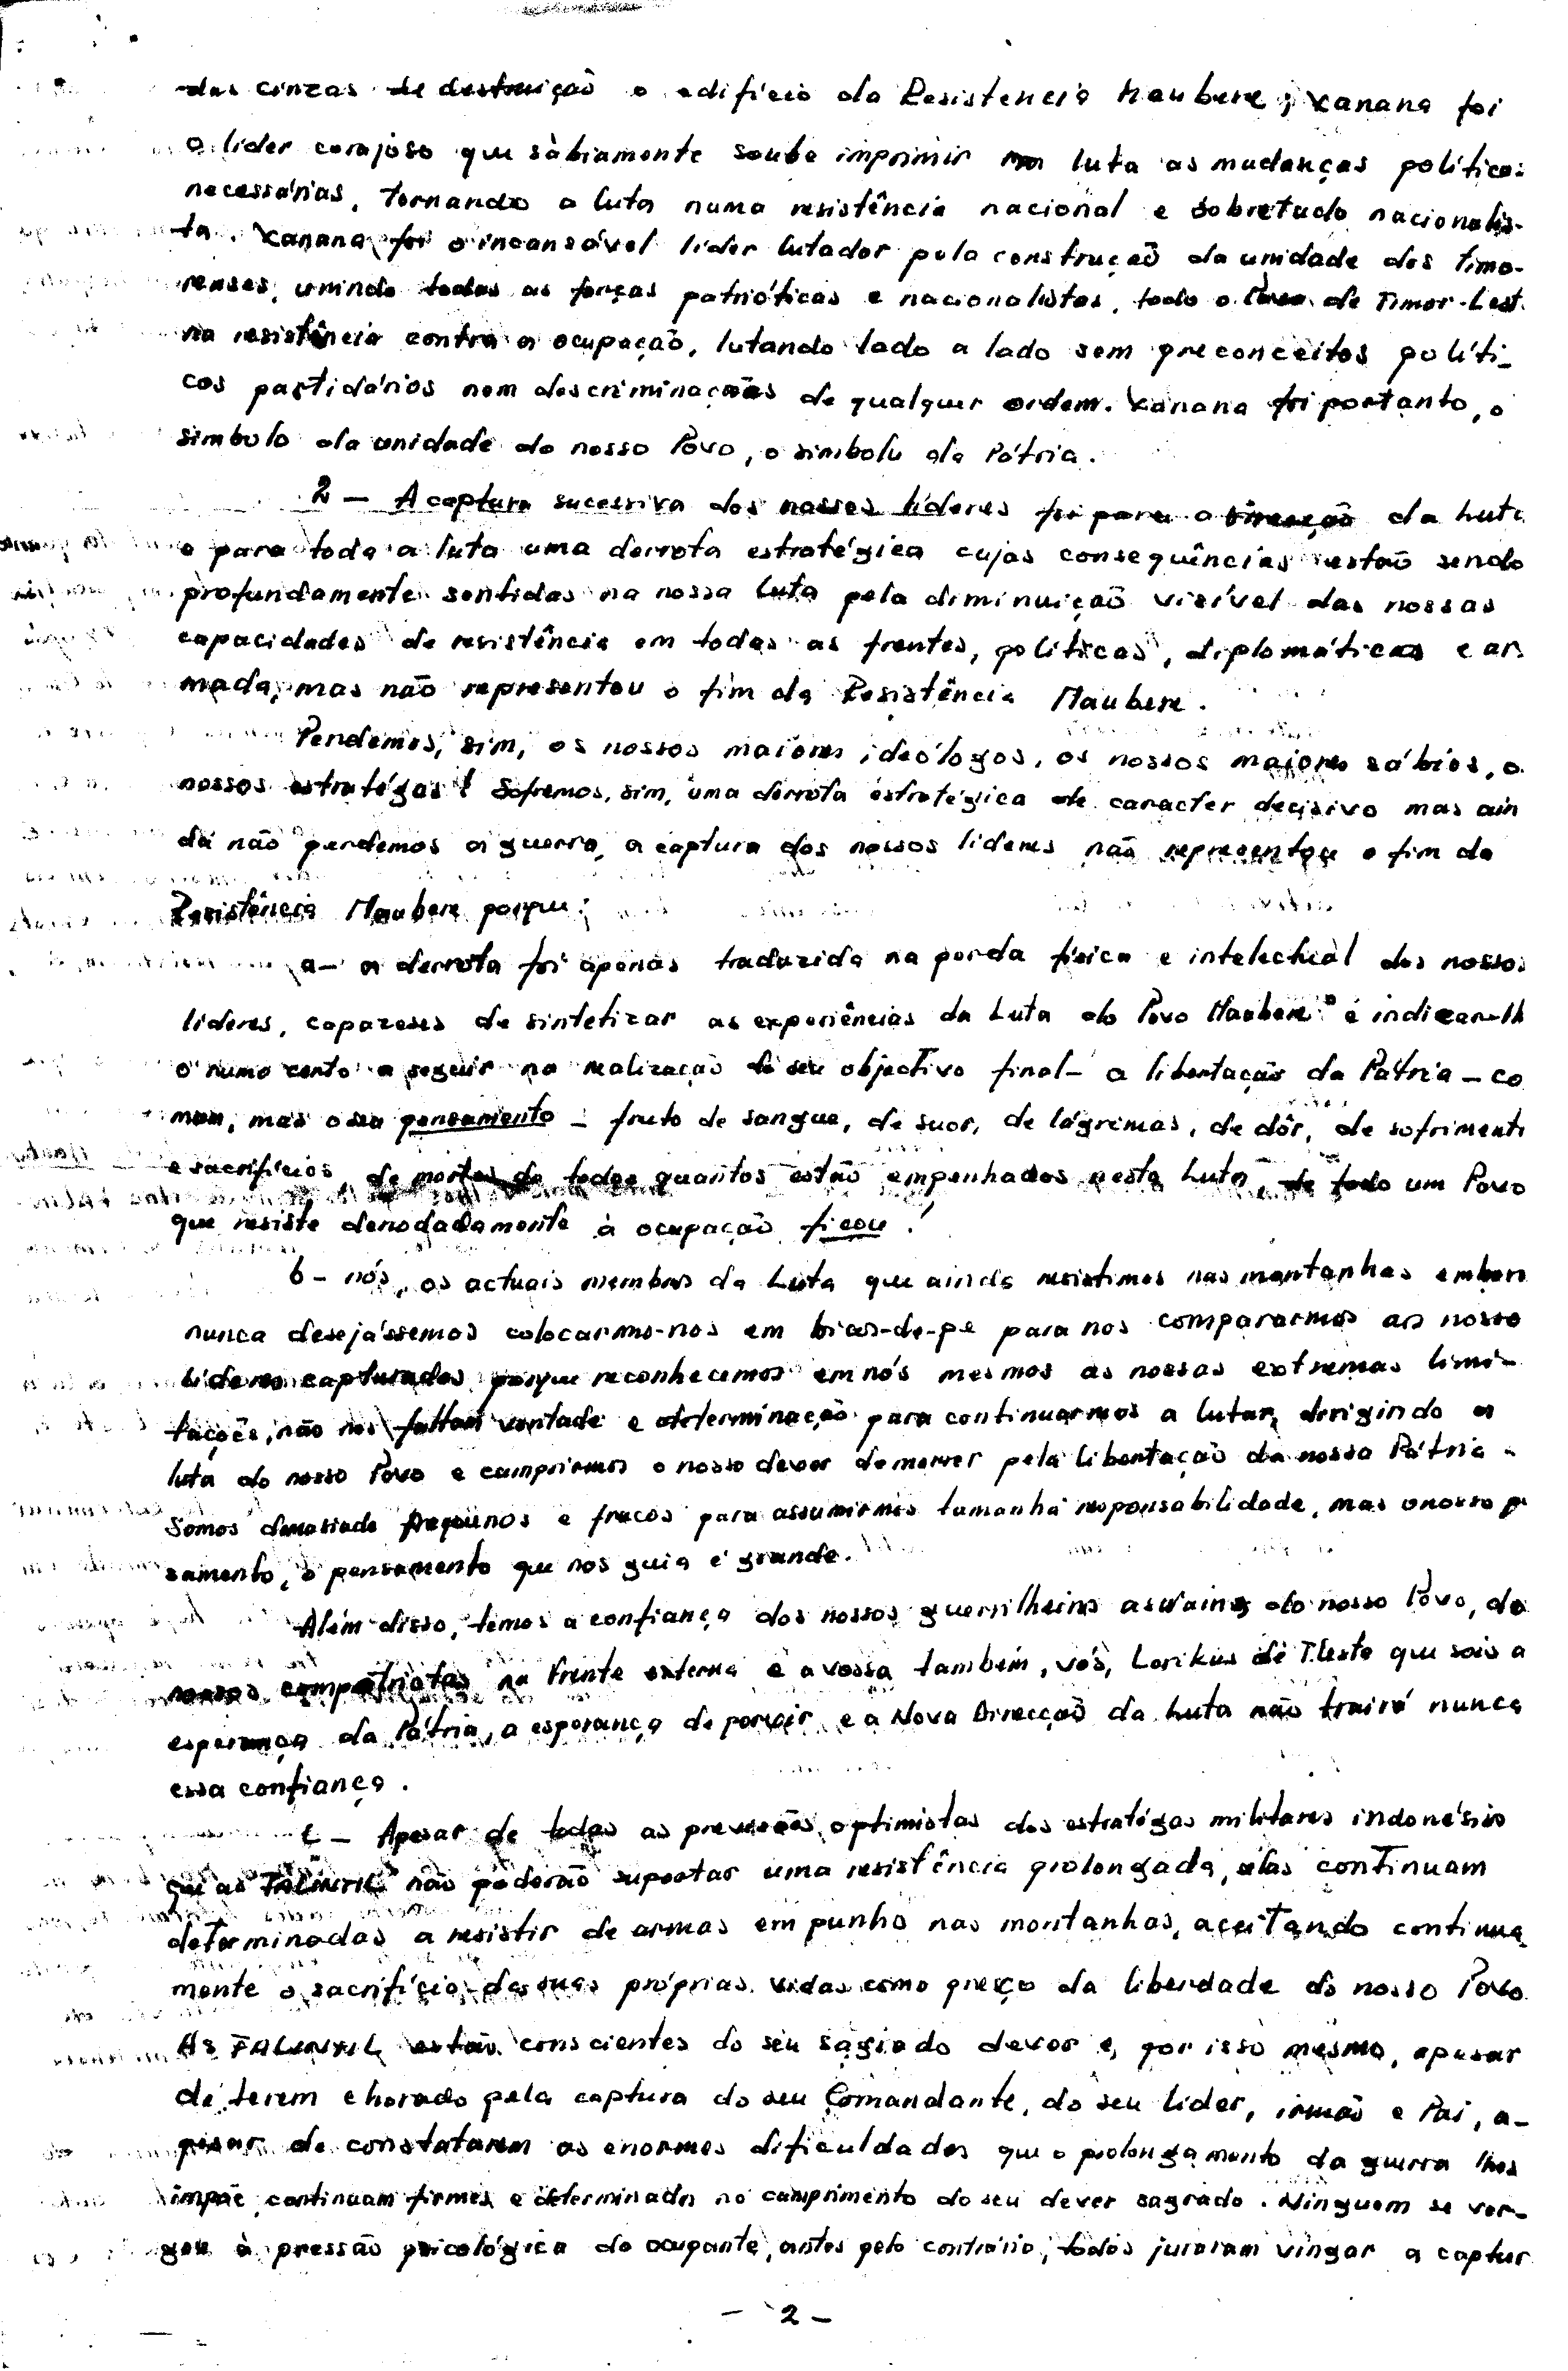 das cinzas de destruição o edifício da Resistencia Maubere; Xanana foi
o líder corajoso que sàbiamente soube imprimir na luta as mudanças política
necessárias, tornando a luta numa resistência nacional e sobretudo nacionalis-
ta. Xanana foi o incansável líder lutador pela construção da unidade dos timo-
renses, unindo todas as forças patrióticas e nacionalistas, todo o Povo de Timor-Lest
na resistência contra a ocupação, lutando lado a lado sem preconceitos políti-
cos partidários nem descriminações de qualquer ordem. Xanana foi portanto, o
simbolo da unidade do nosso Povo, o simbolo da Pátria.
2 - A captura sucessiva dos nossos líderes foi para a Direcção da Luta
e para toda a luta uma derrota estratégica cujas consequências estão sendo
profundamente sentidas na nossa Luta pela diminuição visível das nossas
capacidades de resistência em todas as frentes, políticas, diplomáticas e ar
mada, mas não representou o fim da Resistência Maubere.
Perdemos, sim, os nossos maiores ideólogos, os nossos maiores sábios, o
nossos estratégas! Sofremos, sim, uma derrota estratégica de caracter decisivo mas ain
da não perdemos a guerra, a captura dos nossos líderes não representou o fim da
Resistência Maubere porque:
a- a derrota foi apenas traduzida na perda física e intelectual dos nossos
líderes, capazeses de sintetizar as experiências da Luta do Povo Maubere e indicar-lh
o rumo certo a seguir na realização do seu objectivo final - a libertação da Pátria - co
mum, mas o seu pensamento - fruto de sangue, de suor, de lágrimas, de dôr, de sofriment
e sacrifícios, de mortes de todos quantos estão empenhados nesta Luta, de todo um Povo
que resiste denodadamente à ocupação ficou!
b- nós, os actuais membros da Luta que ainda resistimos nas montanhas embora
nunca desejássemos colocarmo-nos em bicos-de-pé para nos compararmos ao nosso
líderes capturados, porque reconhecemos em nós mesmos as nossas extremas limi-
tações, não nos faltam vontade e determinação para continuarmos a lutar, dirigindo a
luta do nosso Povo e cumprirmos o nosso dever de morrer pela libertação da nossa Pátria -
Somos demasiado pequenos e fracos para assumirmos tamanha responsabilidade, mas o nosso p
samento, o pensamento que nos guia é grande.
Além disso, temos a confiança dos nossos guerrilheiros aswains do nosso Povo, do
nossos compatriotas na Frente externa e a vossa também, vós, Lorikus de T.Leste que sois a
esperança da Pátria, a esperança do porvir e a Nova Direcção da Luta não trairá nunca
essa confiança.
c - Apesar de todas as previsões optimistas dos estratégas militares indonésio
que as "FALINTIL" não poderão suportar uma resistência prolongada, elas continuam
determinadas a resistir de armas em punho nas montanhas, aceitando continua
mente o sacrifício das suas próprias vidas como preço da liberdade do nosso Povo.
As FALINTIL estão conscientes do seu sagrado dever e, por isso mesmo, apesar
de terem chorado pela captura do seu Comandante, do seu líder, irmão e Pai, a-
pesar de constatarem as enormes dificuldades que o prolongamento da guerra lhes
impõe, continuam firmes e determinadas no cumprimento do seu dever sagrado. Ninguem se ver-
gou à pressão psicológica do ocupante, antes pelo contrário, todos juraram vingar a captur
- 2 -